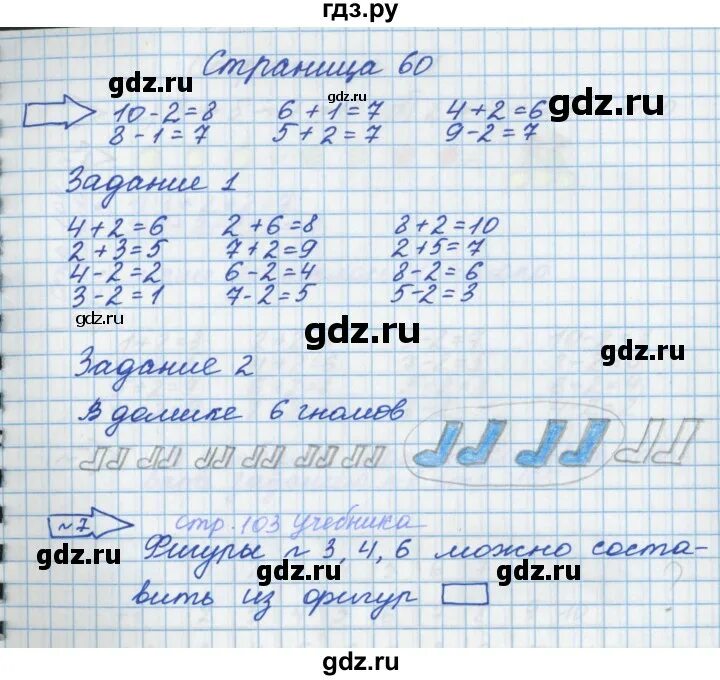 гдз.ру
Страница 60
gdz.ru
gdz.ru
gdz.ru
10-2=8 6+1=7 4+2=6
8-1=7 5+2=7 9-2=7
Задание 1
4+2=6 2+6=8 8+2=10
2+3=5 7+2=9 2+5=7
4-2=2 6-2=4 8-2=6
3-2=1 7-2=5 5-2=3
gdz.ru
gdz.ru
gdz.ru
Задание 2
В домике 6 гномов
№7 стр. 103 учебника
gdz.ru
gdz.ru
gdz.ru
Фигуры № 3, 4, 6 можно соста-
вить из фигур
?
gdz.ru